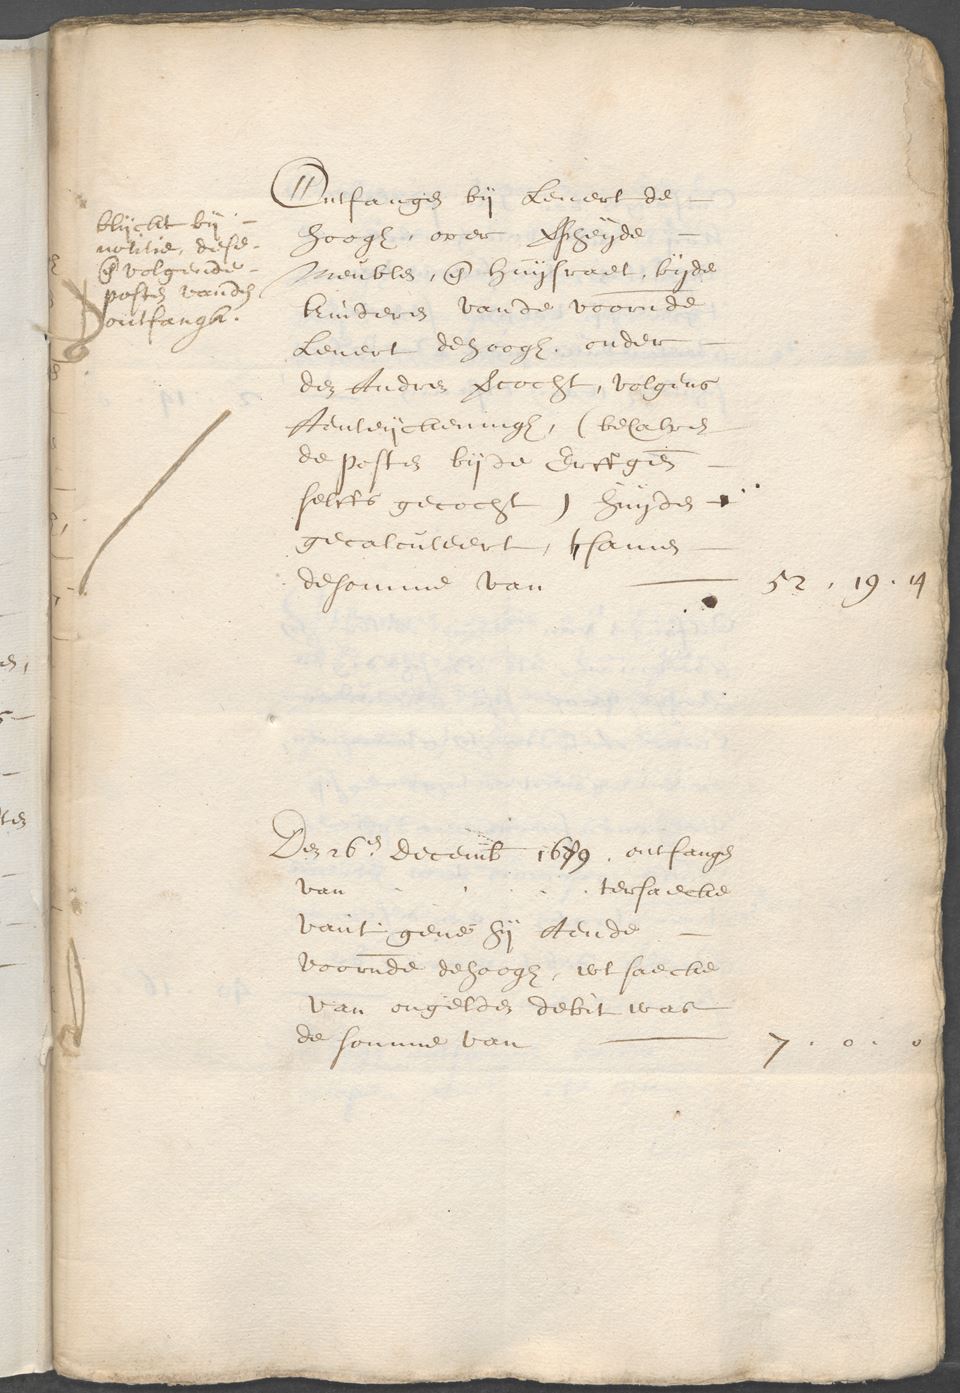 blijckt bij
notitie, dese
en volgende
posten vanden
ontfangh.
Ontfangen bij Leuert de
hoogh, over
Meublen, en huijsraet, bijde
kinderen vande voornde
Leuert de hoogh. onder
den Andren vcocht, volgens
Aenteijckeningh, (behalven
de posten bijde Erffgen
selffs gecocht) huijden
gecalculeert, tsamen
de somme van 52 . 19 . 14
Den 26en Decemb 1679 . ontfangen
van . . . . tersaecke
vant gene hij Aende
voornde de hoogh, wt saecke
van ongelden debit was
de somme van 7 . 0 . 0